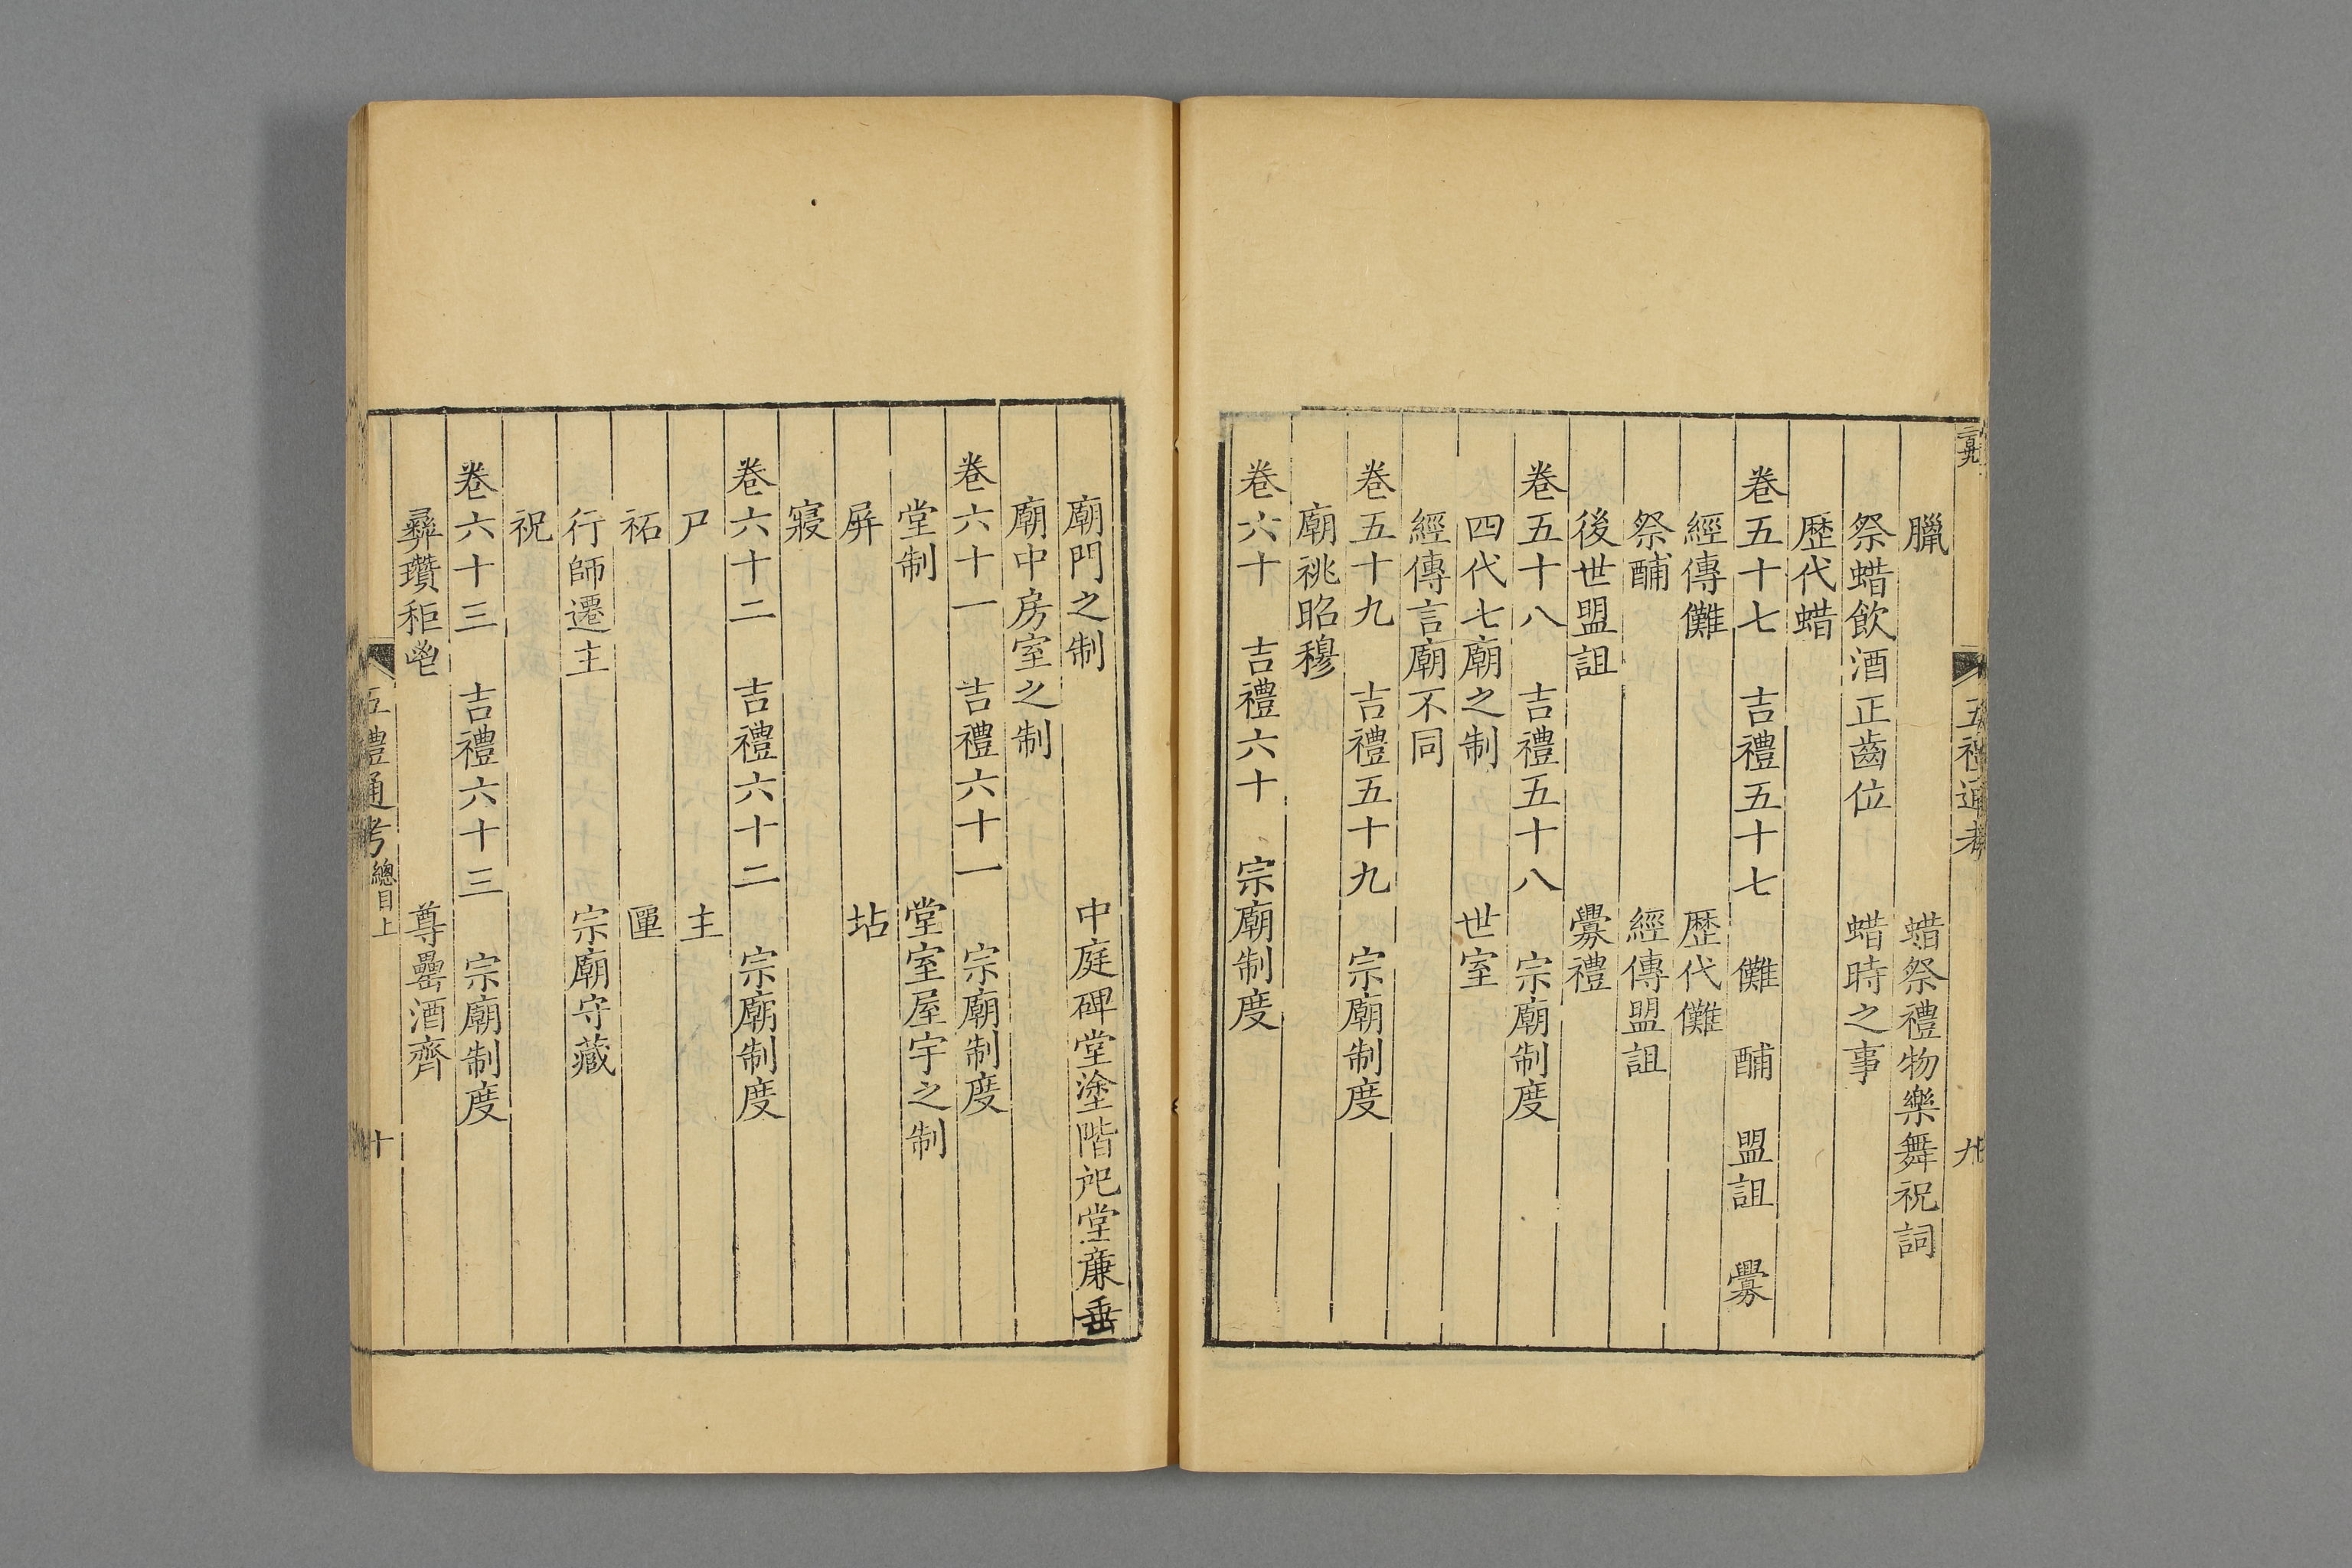 五禮通考
九
臘　蜡祭禮物樂舞祝詞
祭蜡飲酒正齒位　蜡時之事
歷代蜡
卷五十七　吉禮五十七　儺　酺　盟詛　釁
經傳儺　歷代儺
祭酺　經傳盟詛
後世盟詛　釁禮
卷五十八　吉禮五十八　宗廟制度
四代七廟之制　世室
經傳言廟不同
卷五十九　吉禮五十九　宗廟制度
廟祧昭穆
卷六十　吉禮六十　宗廟制度
廟門之制　中庭碑堂塗階戺堂廉垂
廟中房室之制
卷六十一　吉禮六十一　宗廟制度
堂制　堂室屋宇之制
屏　坫
寢
卷六十二　吉禮六十二　宗廟制度
尸　主
祏　匰
行師遷主　宗廟守藏
祝
卷六十三　吉禮六十三　宗廟制度
彝瓚秬鬯　尊罍酒齊
五禮通考總目上
十